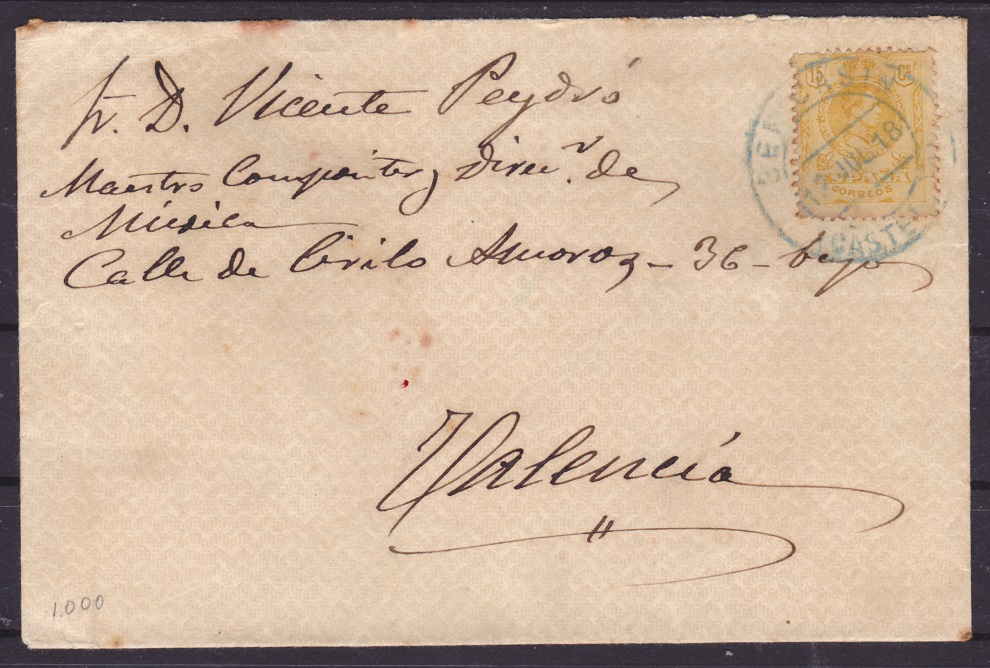 Sr. D. Vicente Peydró
Maestro Compositor y Direcr. de
Música
Calle de Cirilo Amoros - 36 - bajo
Valencia
15 Cs
CORREOS
JUL 18
1.000